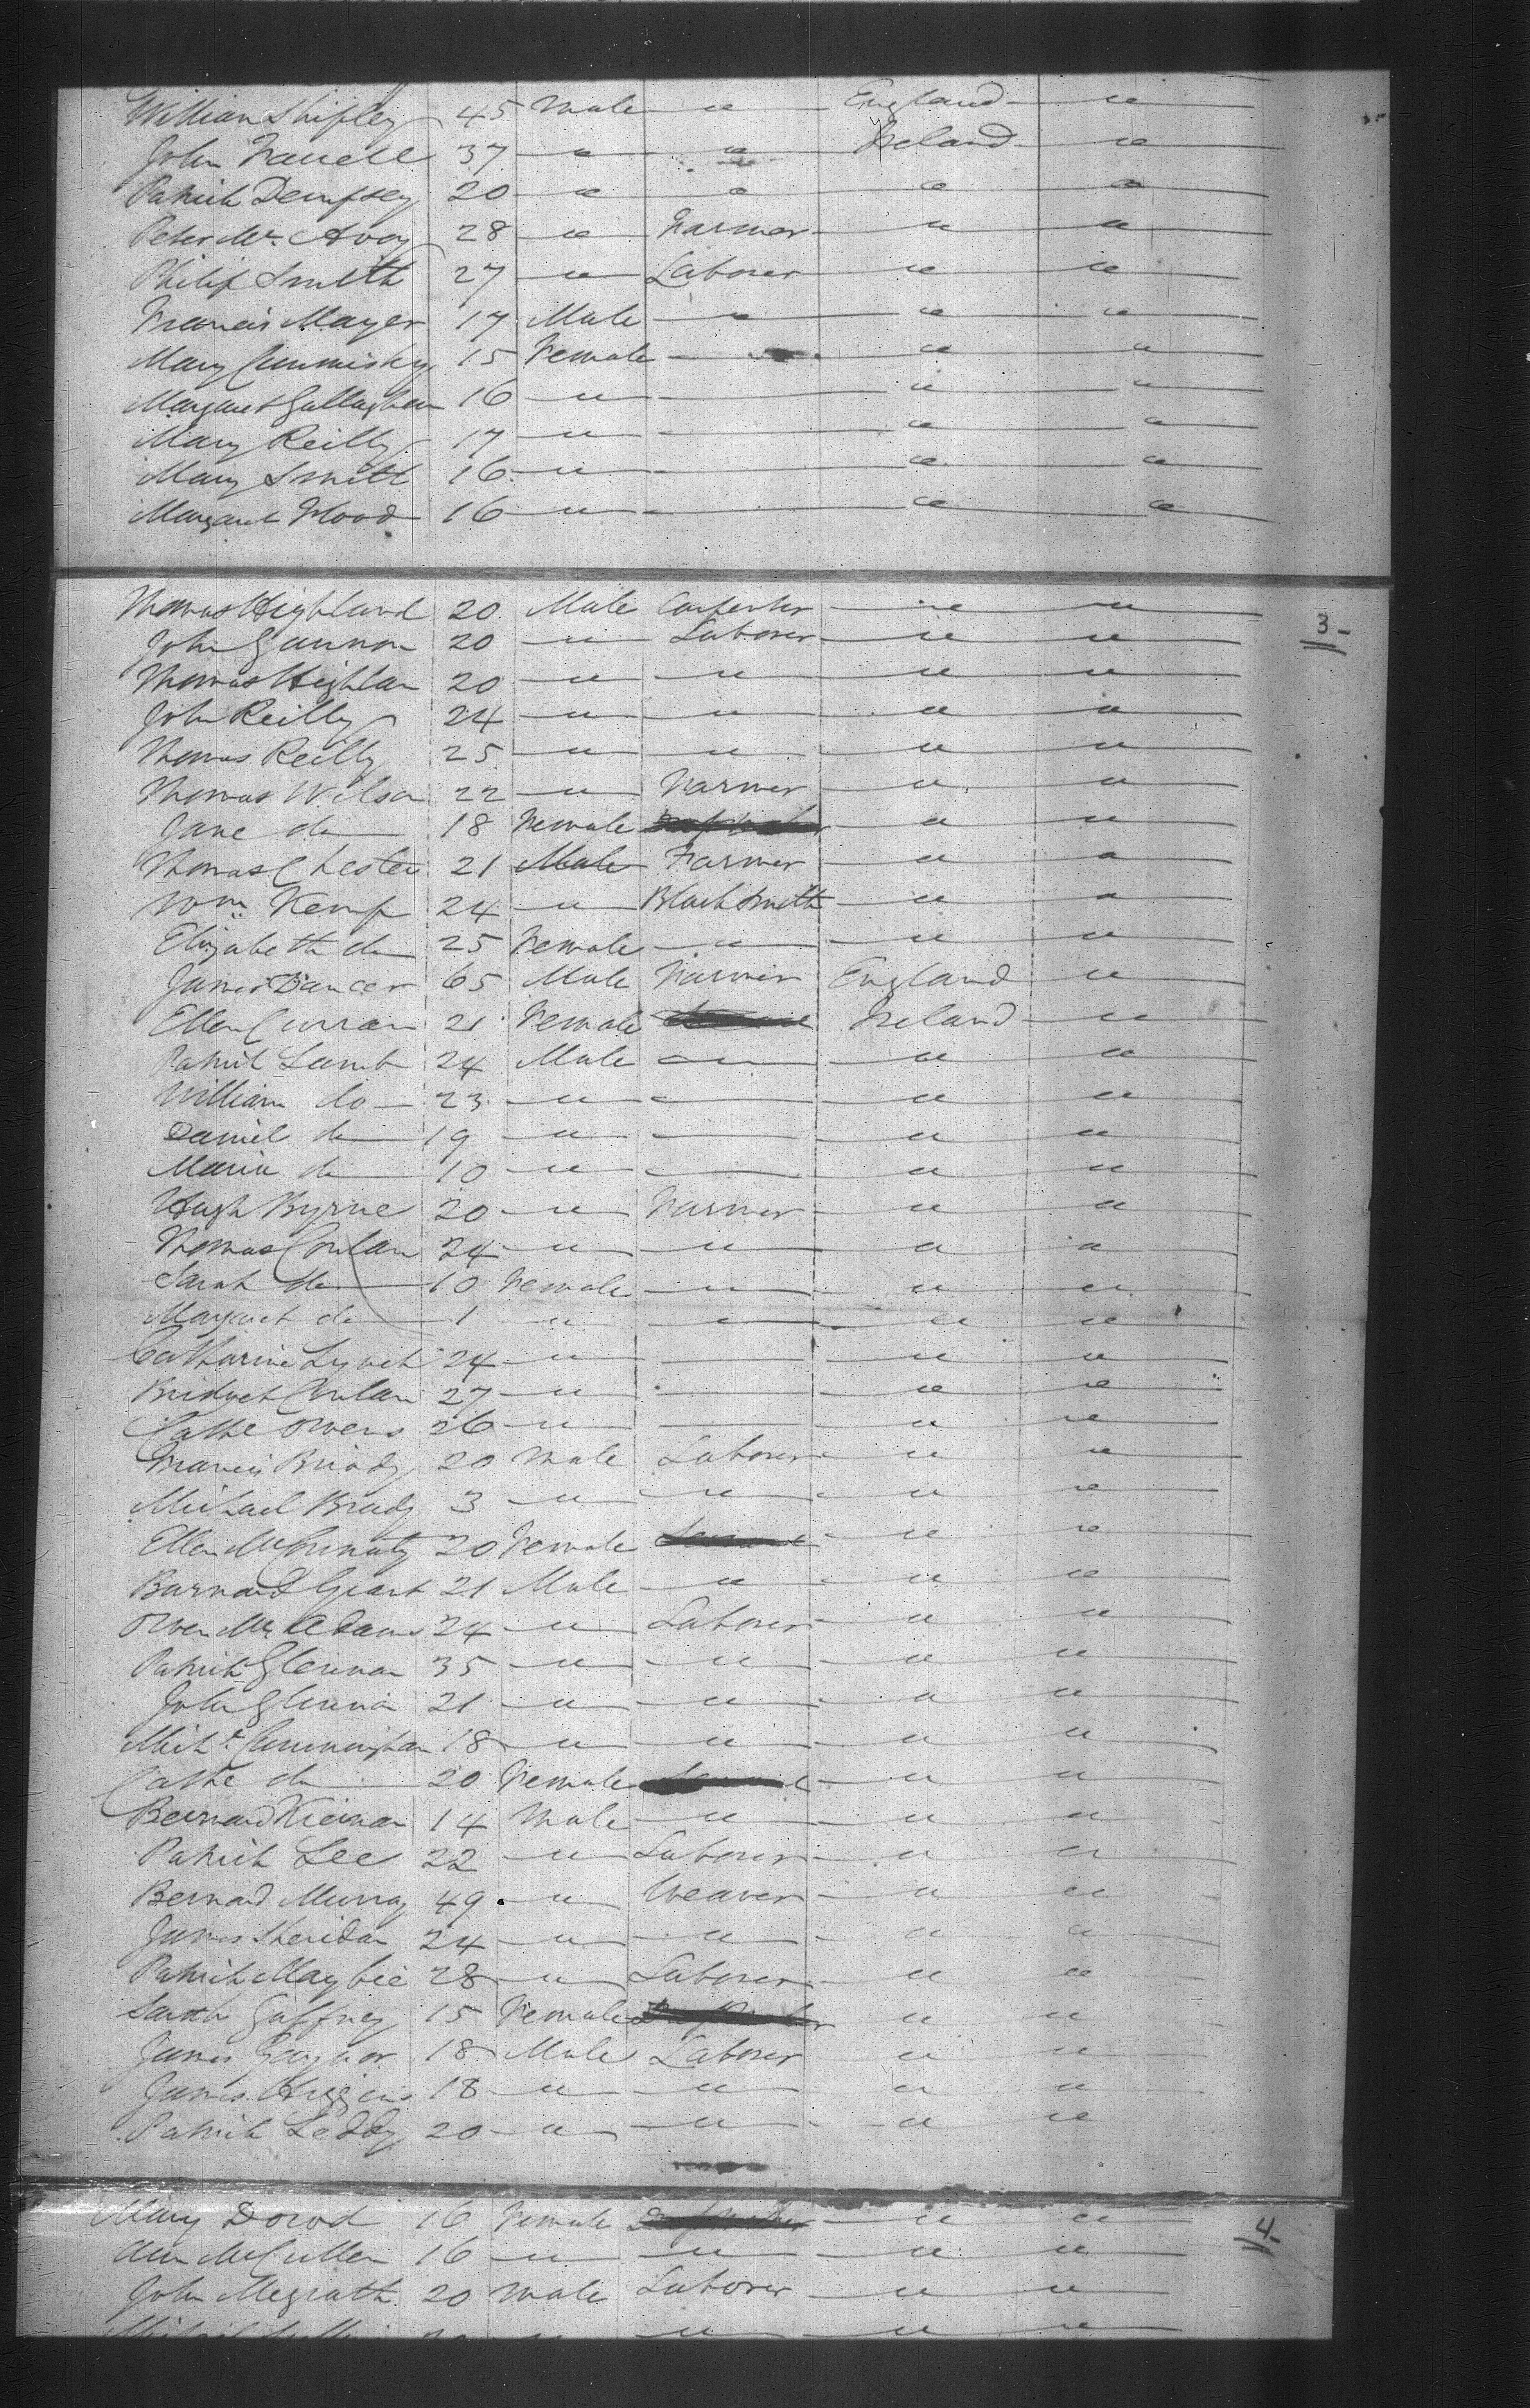 William Shipley 45 Male " England "
John Farrell 37 " " Ireland "
Patrick Dempsey 20 " " " "
Peter Mc Avoy 28 " Farmer " "
Philip Smith 27 " Laborer " "
Francis Mayer 17 Male " " "
Mary Cummisky 15 Female — " "
Margaret Gallaghan 16 " — " "
Mary Reilly 17 " — " "
Mary Smith 16 " — " "
Margaret Flood 16 " — " "
Thomas Highland 20 Male Carpenter " "
3
John Gannon 20 " Laborer " "
Thomas Highlan 20 " " " "
John Reilly 24 " " " "
Thomas Reilly 25 " " " "
Thomas Wilson 22 " Farmer " "
Jane do 18 Female " "
Thomas Chester 21 Male Farmer " "
Wm Kemp 24 " Blacksmith " "
Elizabeth do 25 Female " " "
James Dancer 65 Male Farmer England "
Ellen Curran 21 Female Ireland "
Patrick Lamb 24 Male " " "
William do 23 " — " "
Daniel do 19 " — " "
Maria do 10 " — " "
Hugh Byrne 20 " Farmer " "
Thomas Conlan 24 " " " "
Sarah do 10 Female " " "
Margaret do 1 " " " "
Catharine Lynch 24 " — " "
Bridget Conlan 27 " — " "
Cathe Owens 26 " — " "
Francis Briody 20 Male Laborer " "
Michael Brady 3 " " " "
Ellen 20 Female " "
Barnard Grant 21 Male " " "
Owen Mc Adams 24 " Laborer " "
Patrick Glennan 35 " " " "
John Glennan 21 " " " "
Michl Cunningham 18 " " " "
Cathe do 20 Female " "
Bernard Kiernan 14 Male " " "
Patrick Lee 22 " Laborer " "
Bernard Murray 49 " Weaver " "
James Sheridan 24 " " " "
Patrick Maybie 28 " Laborer " "
Sarah Gaffney 15 Female " "
James Gaynor 18 Male Laborer " "
James Higgins 18 " " " "
Patrick Leddy 20 " " " "
Mary Dowd 16 Female " "
4
Ann McCullen 16 " " " "
John Megrath 20 Male Laborer " "